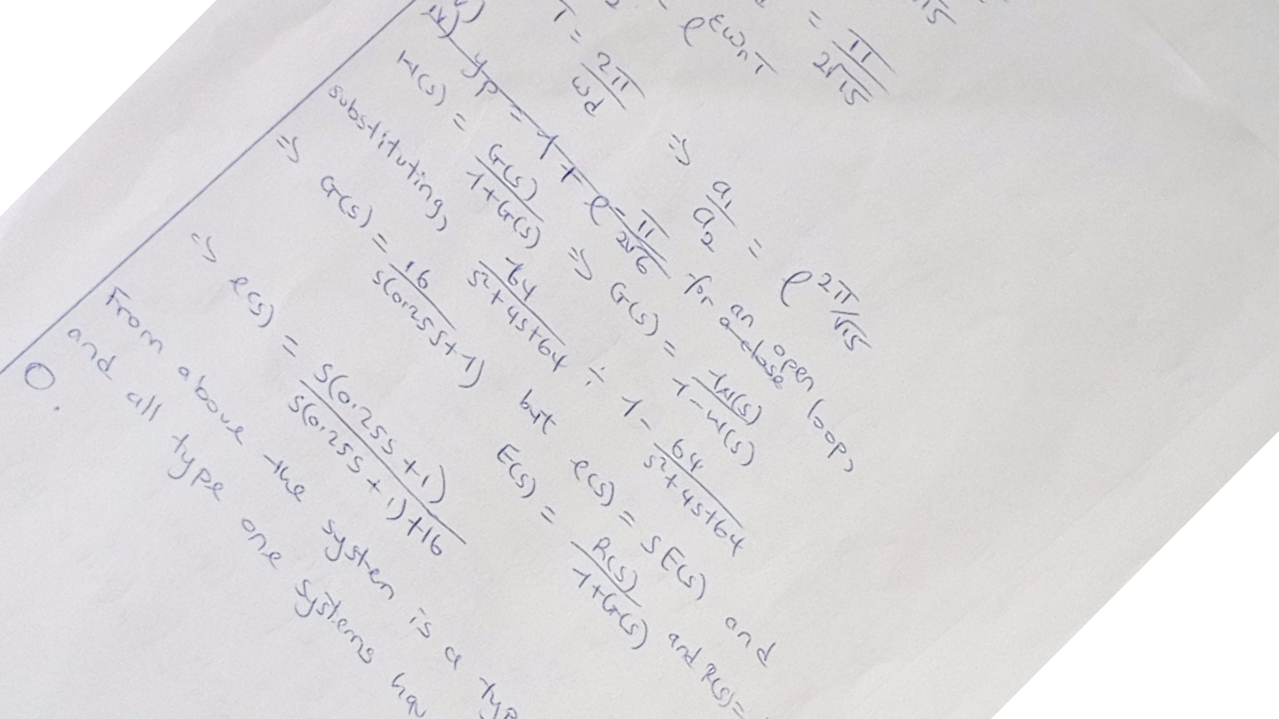 = π/2√15
e^εωnT
T = 2π/ωd ⇒ a₁/a₂ = e^2π/√15
yp = 1 + e^-π/2√6 for an open loop,
a close
H(s) = G(s)/1+G(s) ⇒ G(s) = H(s)/1-H(s)
substituting, 64/s²+4s+64 ÷ 1 - 64/s²+4s+64
⇒ G(s) = 16/s(0.25s+1) but e(s) = sE(s) and
E(s) = R(s)/1+G(s) and R(s)=
⇒ e(s) = s(0.25s+1)/s(0.25s+1)+16
From above the system is a
and all type one systems
0.